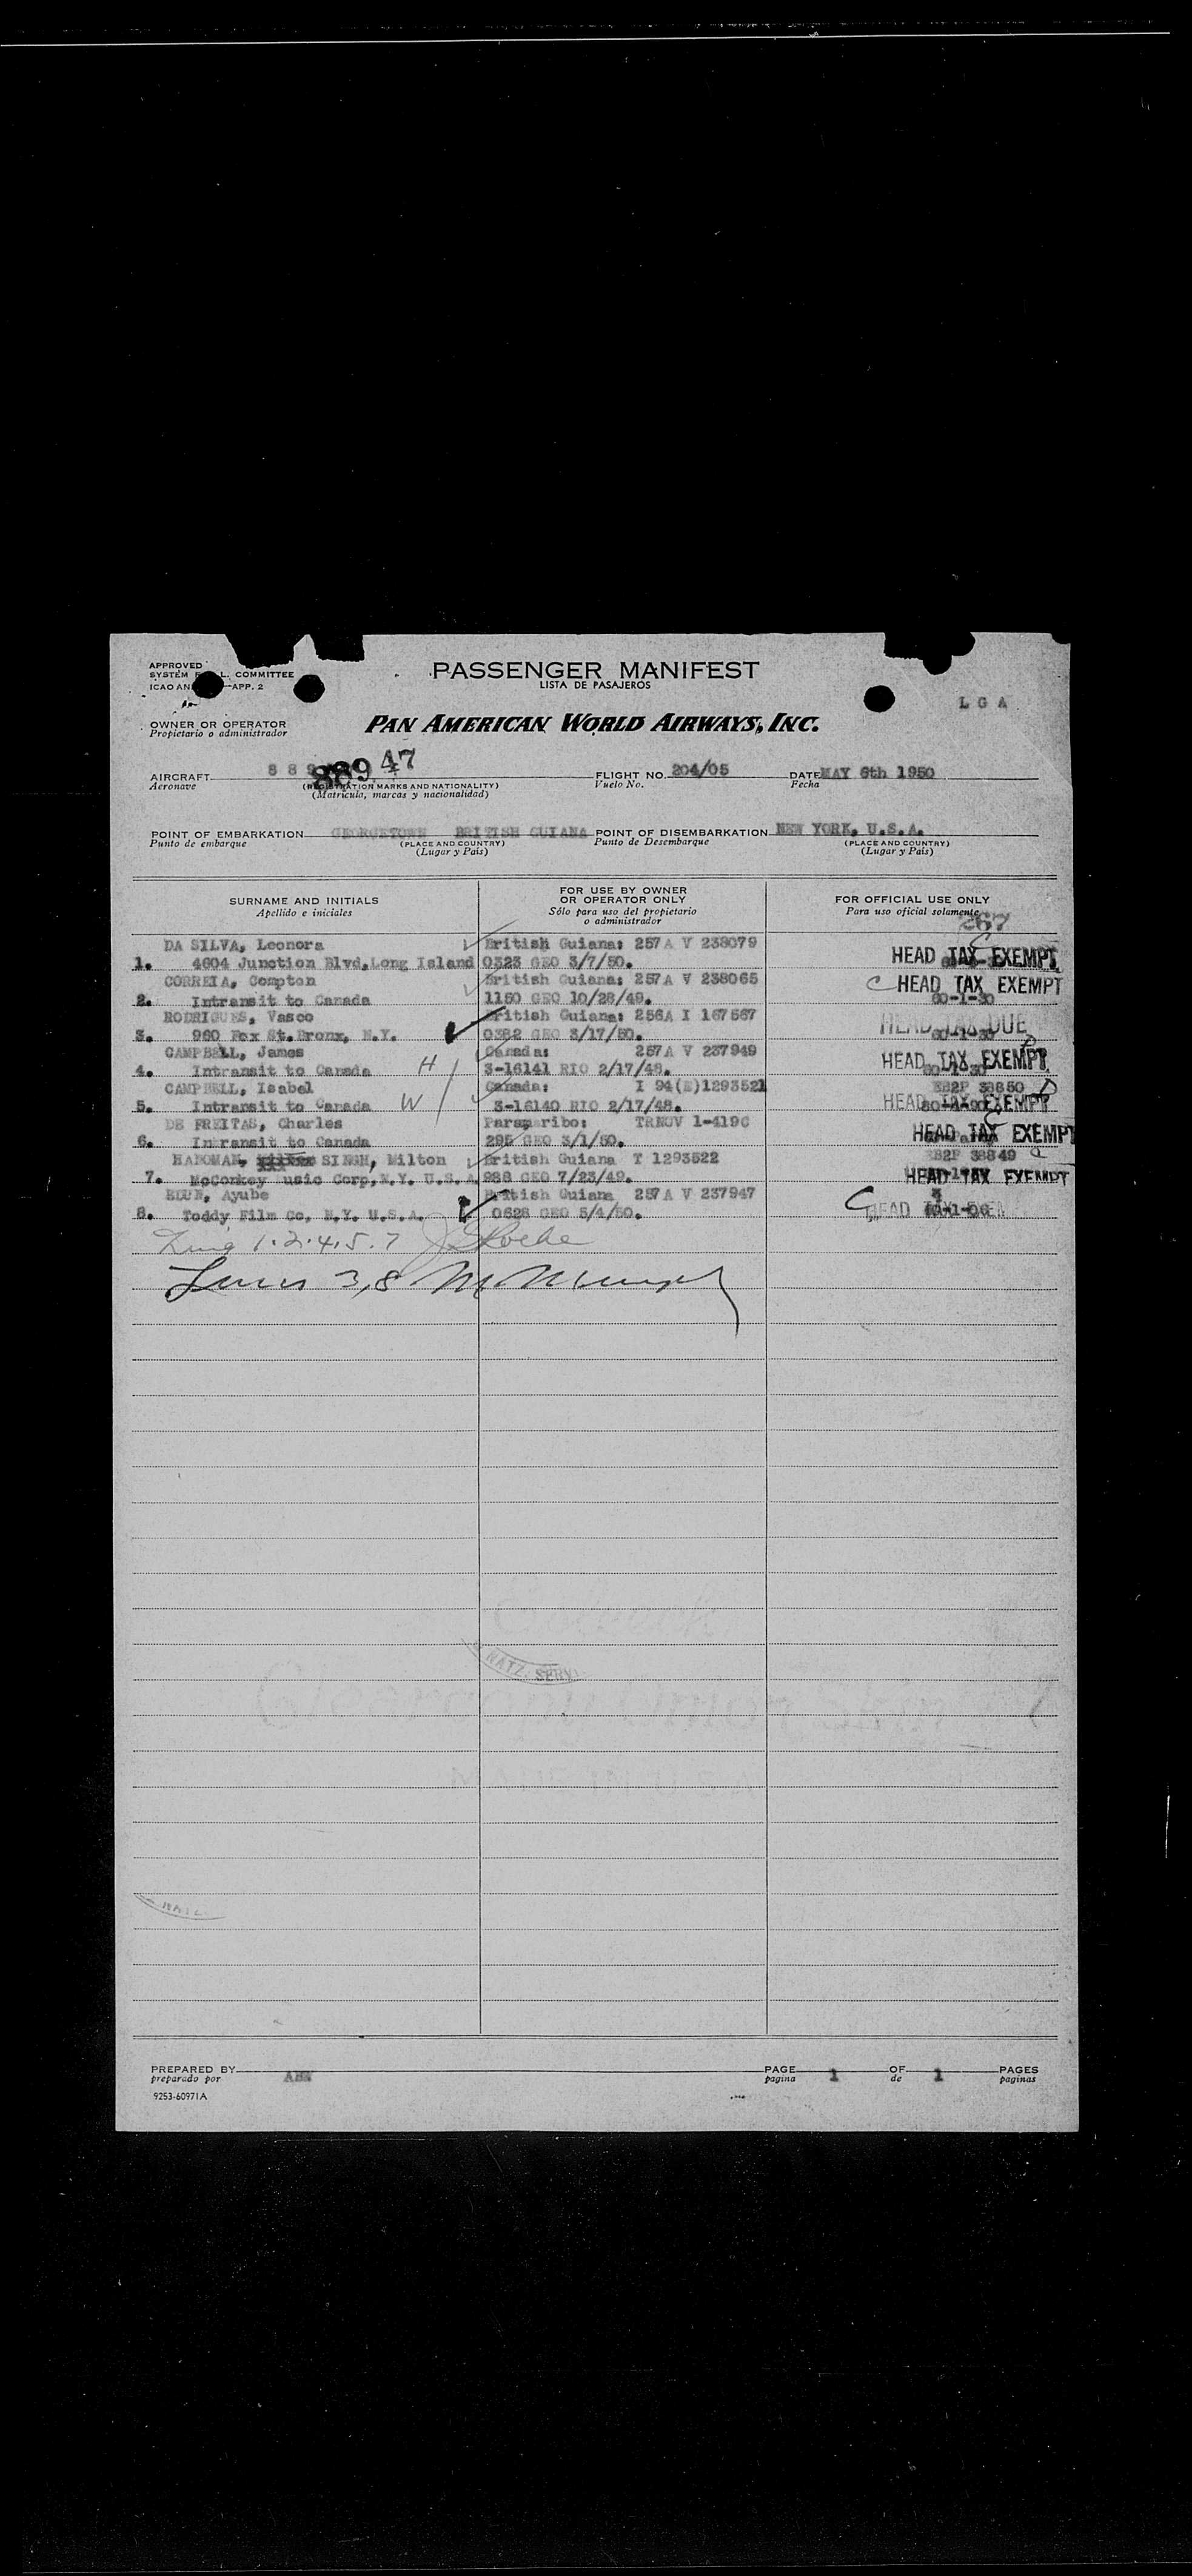 APPROVED
PASSENGER MANIFEST
SYSTEM L. COMMITTEE
LISTA DE PASAJEROS
ICAO AN APP. 2
L G A
OWNER OR OPERATOR
Propietario o administrador
PAN AMERICAN WORLD AIRWAYS, INC.
AIRCRAFT 889 47 FLIGHT NO. 204/05 DATE MAY 6th 1950
Aeronave (REGISTRATION MARKS AND NATIONALITY) Vuelo No. Fecha
(Matrícula, marcas y nacionalidad)
POINT OF EMBARKATION GEORGETOWN BRITISH GUIANA POINT OF DISEMBARKATION NEW YORK, U.S.A.
Punto de embarque (PLACE AND COUNTRY) Punto de Desembarque (PLACE AND COUNTRY)
(Lugar y País) (Lugar y País)
SURNAME AND INITIALS FOR USE BY OWNER OR OPERATOR ONLY FOR OFFICIAL USE ONLY
Apellido e iniciales Sólo para uso del propietario o administrador Para uso oficial solamente
267
DA SILVA, Leonora British Guiana: 257A V 238079
1. 4604 Junction Blvd, Long Island 0323 GEO 3/7/50. HEAD TAX EXEMPT
CORREIA, Compton British Guiana: 257A V 238065
2. Intransit to Canada 1150 GEO 10/28/49. C HEAD TAX EXEMPT
60-1-30
RODRIGUES, Vasco British Guiana: 256A I 167567
3. 960 Fox St. Bronx, N.Y. 0382 GEO 3/17/50. HEAD TAX DUE
CAMPBELL, James Canada: 257A V 237949
4. Intransit to Canada H 3-16141 RIO 2/17/48. HEAD TAX EXEMPT
CAMPBELL, Isabel Canada: I 94(E)1293521
5. Intransit to Canada W 3-16140 RIO 2/17/48. HEAD TAX EXEMPT
DE FREITAS, Charles Paramaribo: TRNOV 1-419C
6. Intransit to Canada 295 GEO 3/1/50. HEAD TAX EXEMPT
HANOMAN, SINGH, Milton British Guiana T 1293522 38849
7. McConkey usic Corp, N.Y. U.S.A. 988 GEO 7/23/49. HEAD TAX EXEMPT
EDUN, Ayube British Guiana 257A V 237947
8. Toddy Film Co, N.Y. U.S.A. 0628 GEO 5/4/50. C HEAD
1.2.4.5.7 J Roche
Lines 3,8
NATZ. SERV.
PREPARED BY PAGE 1 OF 1 PAGES
preparado por pagina de paginas
9253-60971A